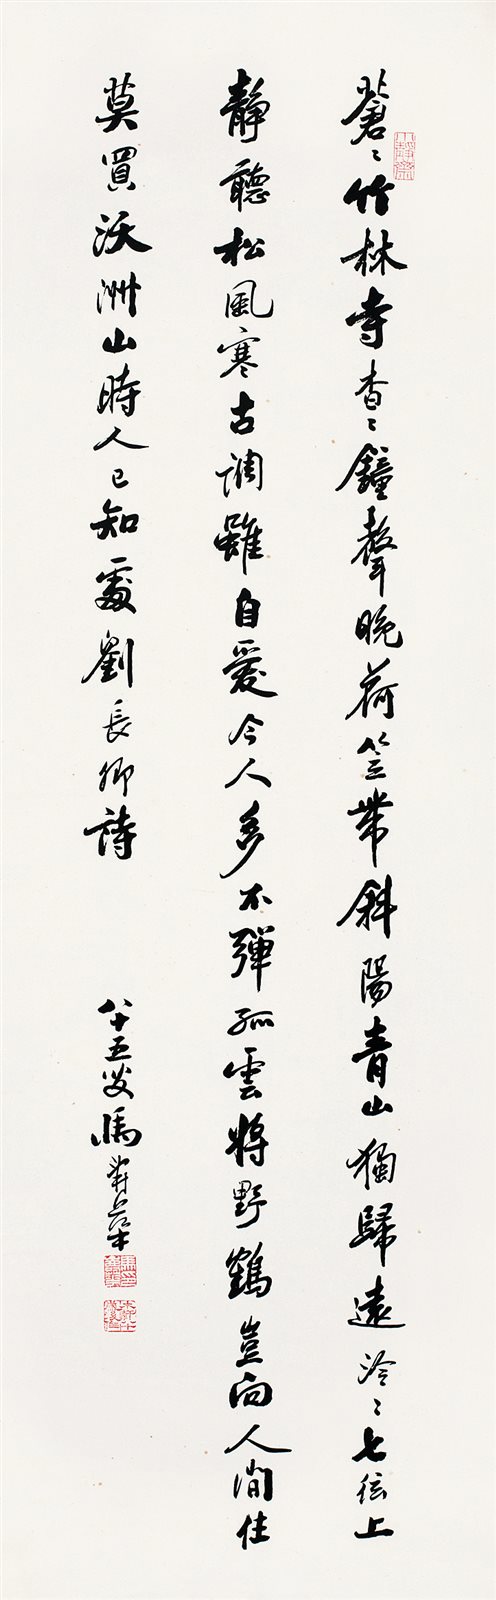 蒼〻竹林寺杳〻鐘聲晚荷笠帶斜陽青山獨歸遠泠〻七弦上
靜聽松風寒古調雖自愛今人多不彈孤雲將野鶴豈向人間住
莫買沃洲山時人已知處劉長卿詩
八十五叟馬壽華